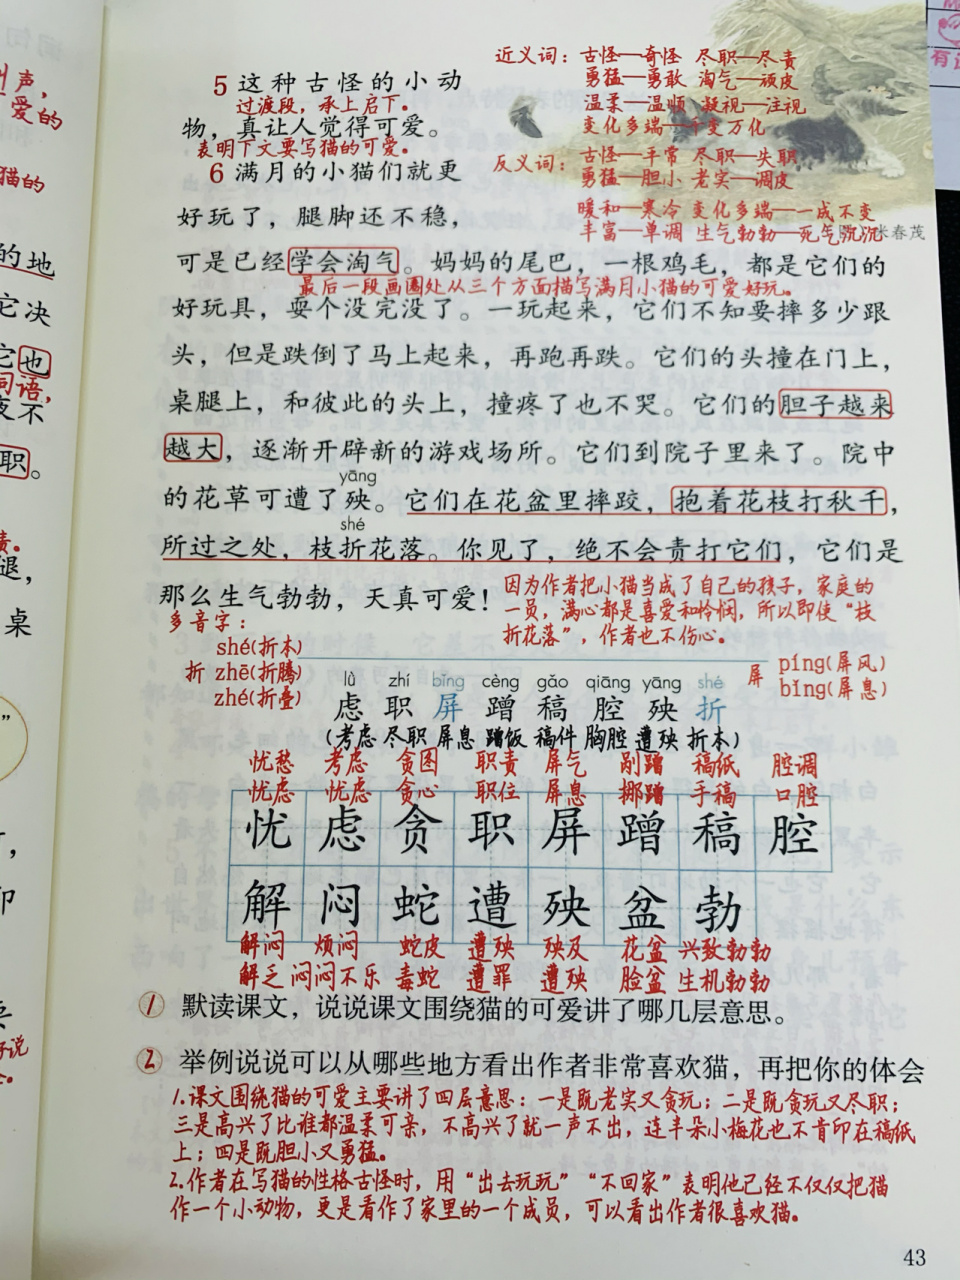 近义词：古怪—奇怪 尽职—尽责
勇猛—勇敢 淘气—顽皮
温柔—温顺 凝视—注视
变化多端—千变万化
反义词：古怪—平常 尽职—失职
勇猛—胆小 老实—调皮
暖和—寒冷 变化多端—一成不变
丰富—单调 生气勃勃—死气沉沉
米春茂
5 这种古怪的小动
过渡段，承上启下。
物，真让人觉得可爱。
表明下文要写猫的可爱。
6 满月的小猫们就更
好玩了，腿脚还不稳，
可是已经学会淘气。妈妈的尾巴，一根鸡毛，都是它们的
最后一段画圈处从三个方面描写满月小猫的可爱好玩。
好玩具，耍个没完没了。一玩起来，它们不知要摔多少跟
头，但是跌倒了马上起来，再跑再跌。它们的头撞在门上，
桌腿上，和彼此的头上，撞疼了也不哭。它们的胆子越来
越大，逐渐开辟新的游戏场所。它们到院子里来了。院中
yāng
的花草可遭了殃。它们在花盆里摔跤，抱着花枝打秋千，
shé
所过之处，枝折花落。你见了，绝不会责打它们，它们是
那么生气勃勃，天真可爱！
因为作者把小猫当成了自己的孩子，家庭的
一员，满心都是喜爱和怜悯，所以即使“枝
折花落”，作者也不伤心。
多音字：
折 shé(折本)
zhē(折腾)
zhé(折叠)
屏 píng(屏风)
bǐng(屏息)
lǜ zhí bǐng cèng gǎo qiāng yāng shé
虑 职 屏 蹭 稿 腔 殃 折
(考虑 尽职 屏息 蹭饭 稿件 胸腔 遭殃 折本)
忧愁 考虑 贪图 职责 屏气 剐蹭 稿纸 腔调
忧虑 忧虑 贪心 职位 屏息 挪蹭 手稿 口腔
忧 虑 贪 职 屏 蹭 稿 腔
解 闷 蛇 遭 殃 盆 勃
解闷 烦闷 蛇皮 遭殃 殃及 花盆 兴致勃勃
解乏 闷闷不乐 毒蛇 遭罪 遭殃 脸盆 生机勃勃
1 默读课文，说说课文围绕猫的可爱讲了哪几层意思。
2 举例说说可以从哪些地方看出作者非常喜欢猫，再把你的体会
1.课文围绕猫的可爱主要讲了四层意思：一是既老实又贪玩；二是既贪玩又尽职；
三是高兴了比谁都温柔可亲，不高兴了就一声不出，连半朵小梅花也不肯印在稿纸
上；四是既胆小又勇猛。
2.作者在写猫的性格古怪时，用“出去玩玩”“不回家”表明他已经不仅仅把猫
作一个小动物，更是看作了家里的一个成员，可以看出作者很喜欢猫。
43
声，
爱的
猫的
的地
它决
它也
词语，
夜不
职。
责。
退，
桌
”
，
印
好说